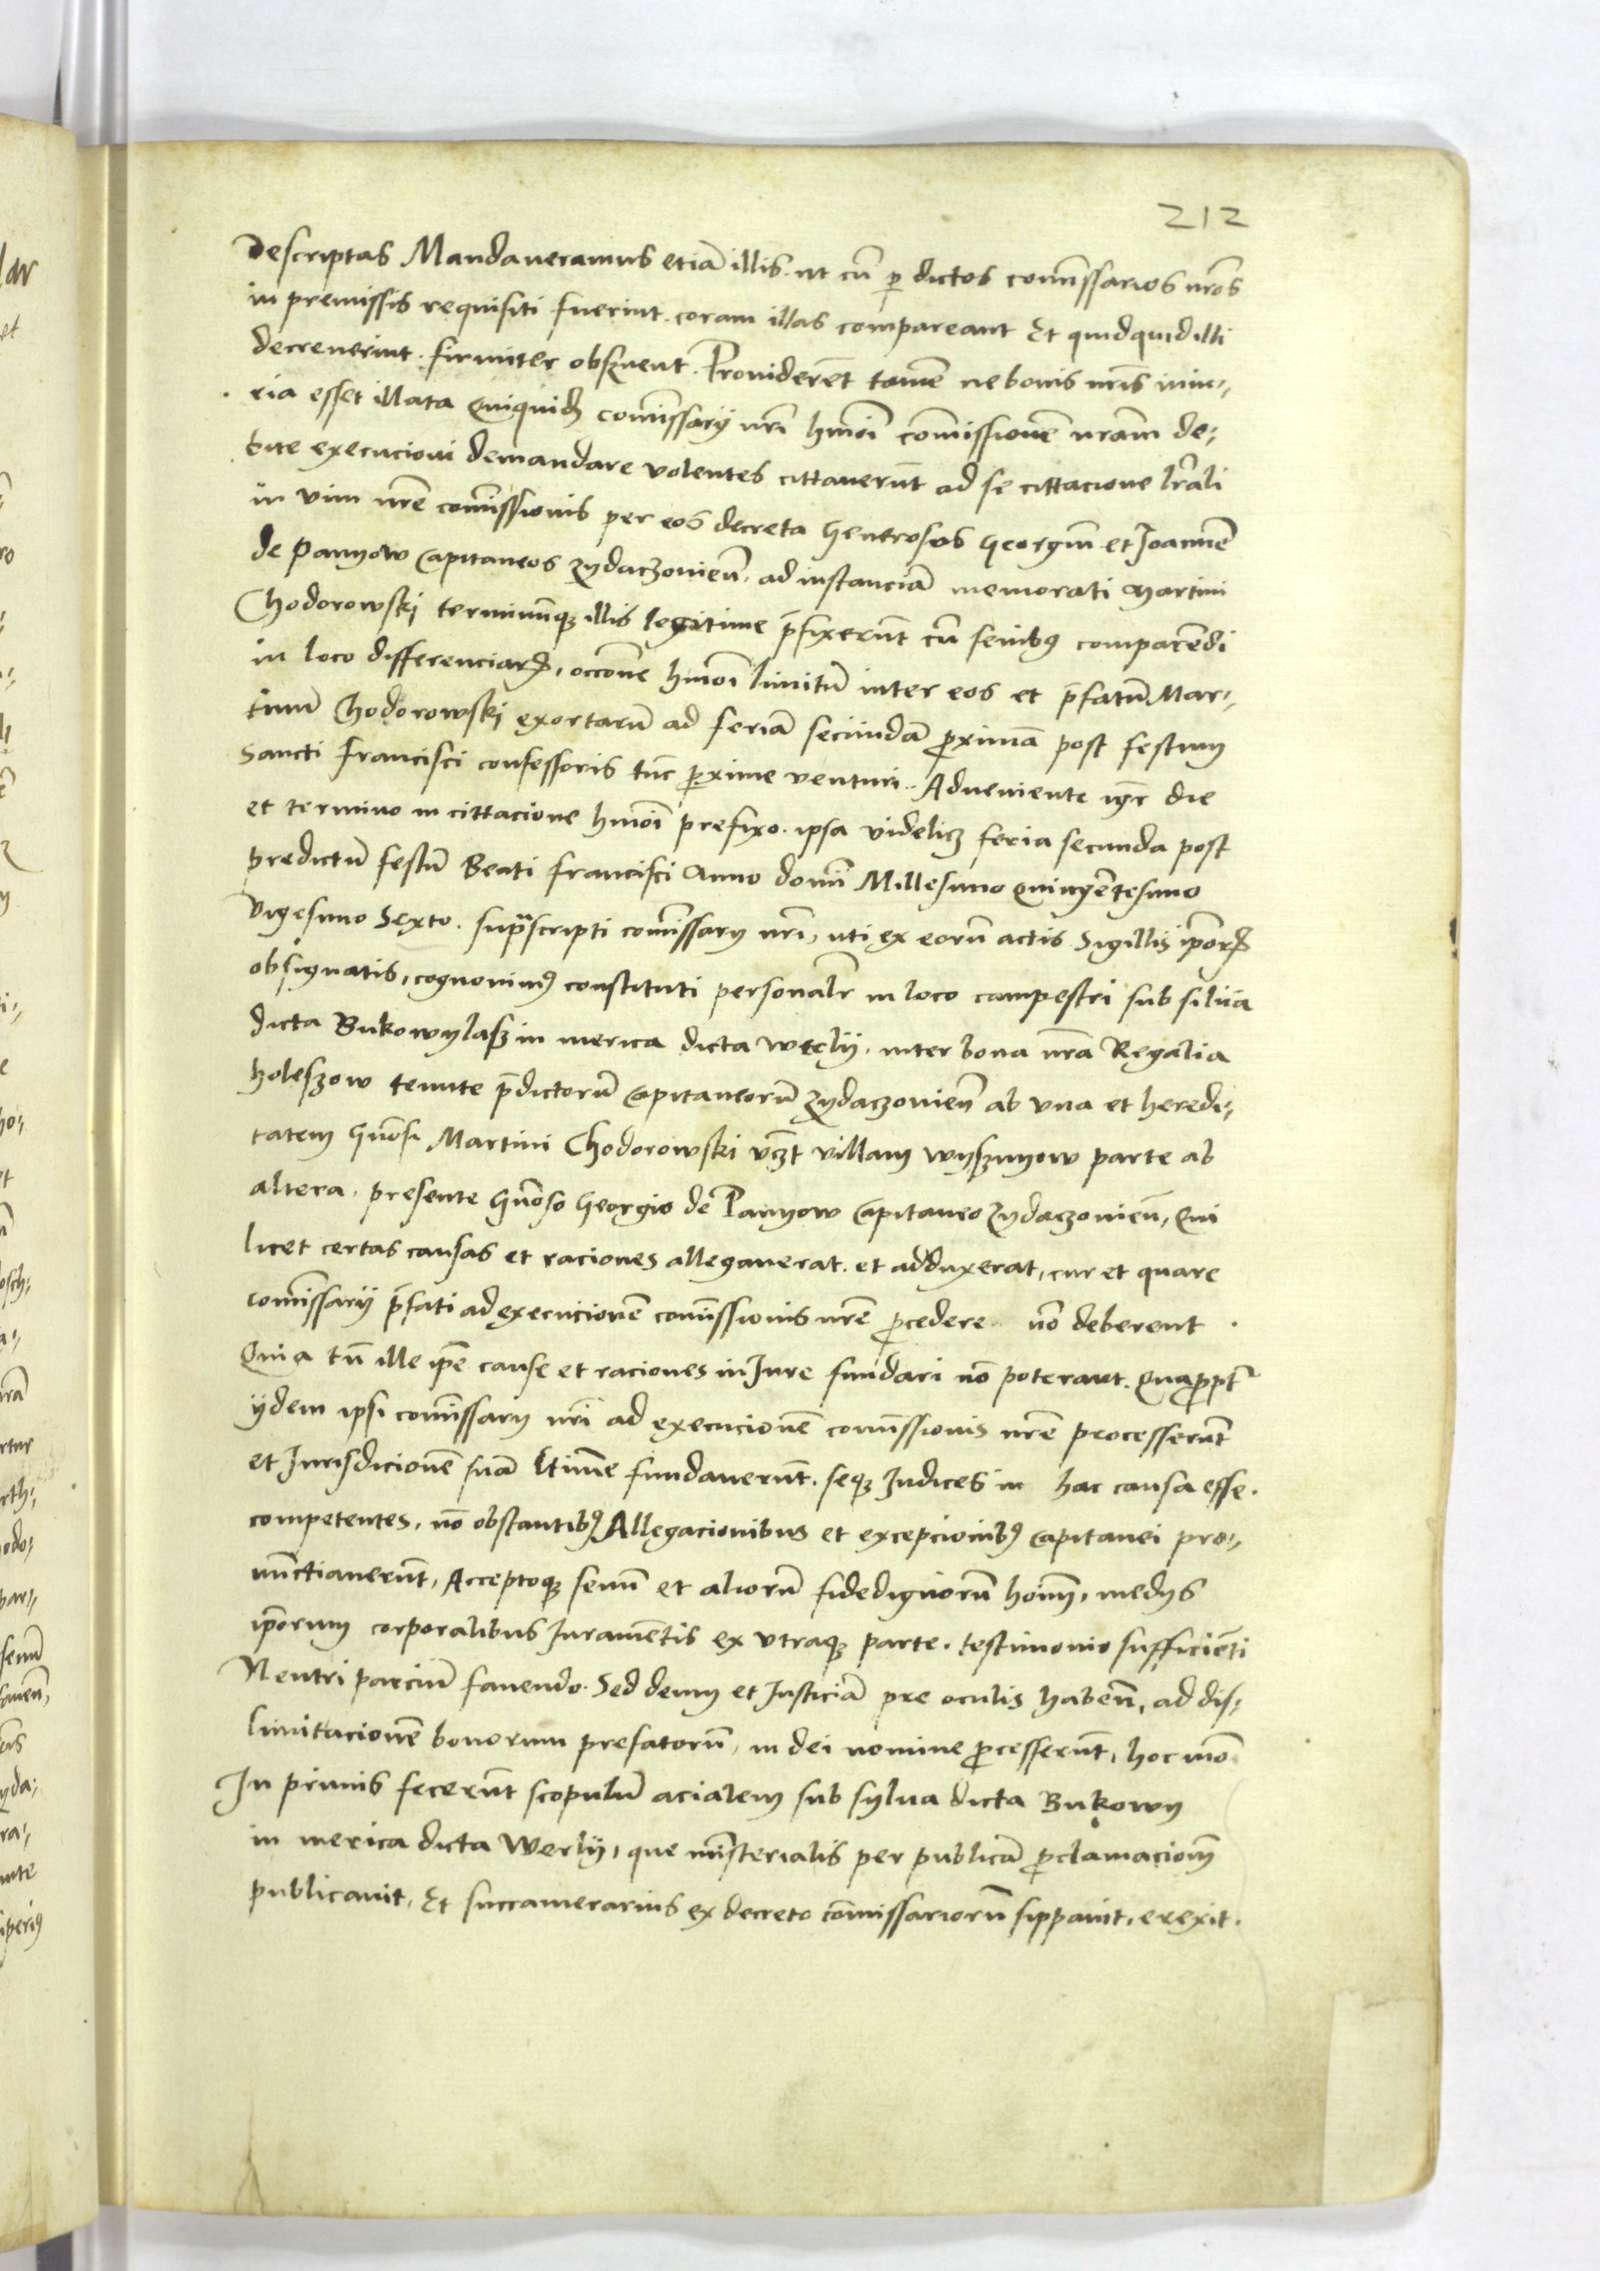 212
Descriptas Mandaveramus etiã illis. ut cũ p dictos comissarios nros
in premissis requisiti fuerint. coram illas compareant Et quidquid illi
decreverint. firmiter obsȝuent. Providerẽt tamẽ ne bonis nris iniu-
ria esset illata Quiquidȝ comissarij nri hmõi comissionẽ nram de-
bite execucioni demandare volentes cittaverũt ad se cittacione lrali
in vim nre comissionis per eos decreta Generosos Georgiũ et Joannẽ
de Panyow Capitaneos Zydaczovieñ. ad instanciã memorati Martini
Chodorowski terminũqȝ illis legitime p̃fixerũt cũ senibꝯ comparẽdi
in loco differenciarꝝ, occõne hmõi limitũ inter eos et p̃fatũ Mar-
tinũ Chodorowski exortarũ ad feriã secundã proximã post festum
Sancti Francisci confessoris tũc proxime venturi. Adveniente igr die
et termino in cittacione hmõi prefixo. ipsa videlicȝ feria secunda post
predictũ festũ Beati Francisci Anno domi Millesimo Quingẽtesimo
Vigesimo Sexto. suprascripti comissarij nri, uti ex eorũ actis Sigillis ipõrꝝ
obsignatis, cognovimꝯ constituti personalr in loco campestri sub silva
dicta Bukowylasz in merica dicta Werly. inter bona nra Regalia
holeszow tenute p̃dictorũ Capitaneorũ Zydaczovieñ ab una et heredi-
tatem Gñosi Martini Chodorowski vȝt villam Wysznyow parte ab
altera. presente Gñoso Georgio de Panyow Capitaneo Zydaczovieñ, Qui
licet certas causas et raciones allegaverat. et adduxerat, cur et quare
comissarij p̃fati ad execucionẽ comissionis nre procedere nõ deberent.
Quia tñ ille ipe cause et raciones in Jure fundari nõ poterant. Quappt
ijdem ipsi comissarij nri ad execucionẽ comissionis nre processerũt
et Jurisdicionẽ suã ltimẽ fundaverũt. seqȝ Judices in hac causa esse.
competentes, nõ obstantibꝯ Allegacionibus et excepcionibꝯ Capitanei pro-
nũctiaverũt, Acceptoqȝ senũ et aliorũ fidedignorũ homĩ, medijs
ipõrum corporalibus Juramẽtis ex utraqȝ parte. testimonio sufficiẽti
Neutri parciũ favendo. Sed deum et Justiciã pre oculis habeñ, ad dis-
limitacionẽ bonorum prefatorũ, in dei nomine processerũt, hoc mõ
In primis fecerũt scopulũ acialem sub sylva dicta Bukowy
in merica dicta Werly, que ministerialis per publicã proclamacionẽ
publicavit, Et succamerarius ex decreto comissariorũ sippavit, erexit.